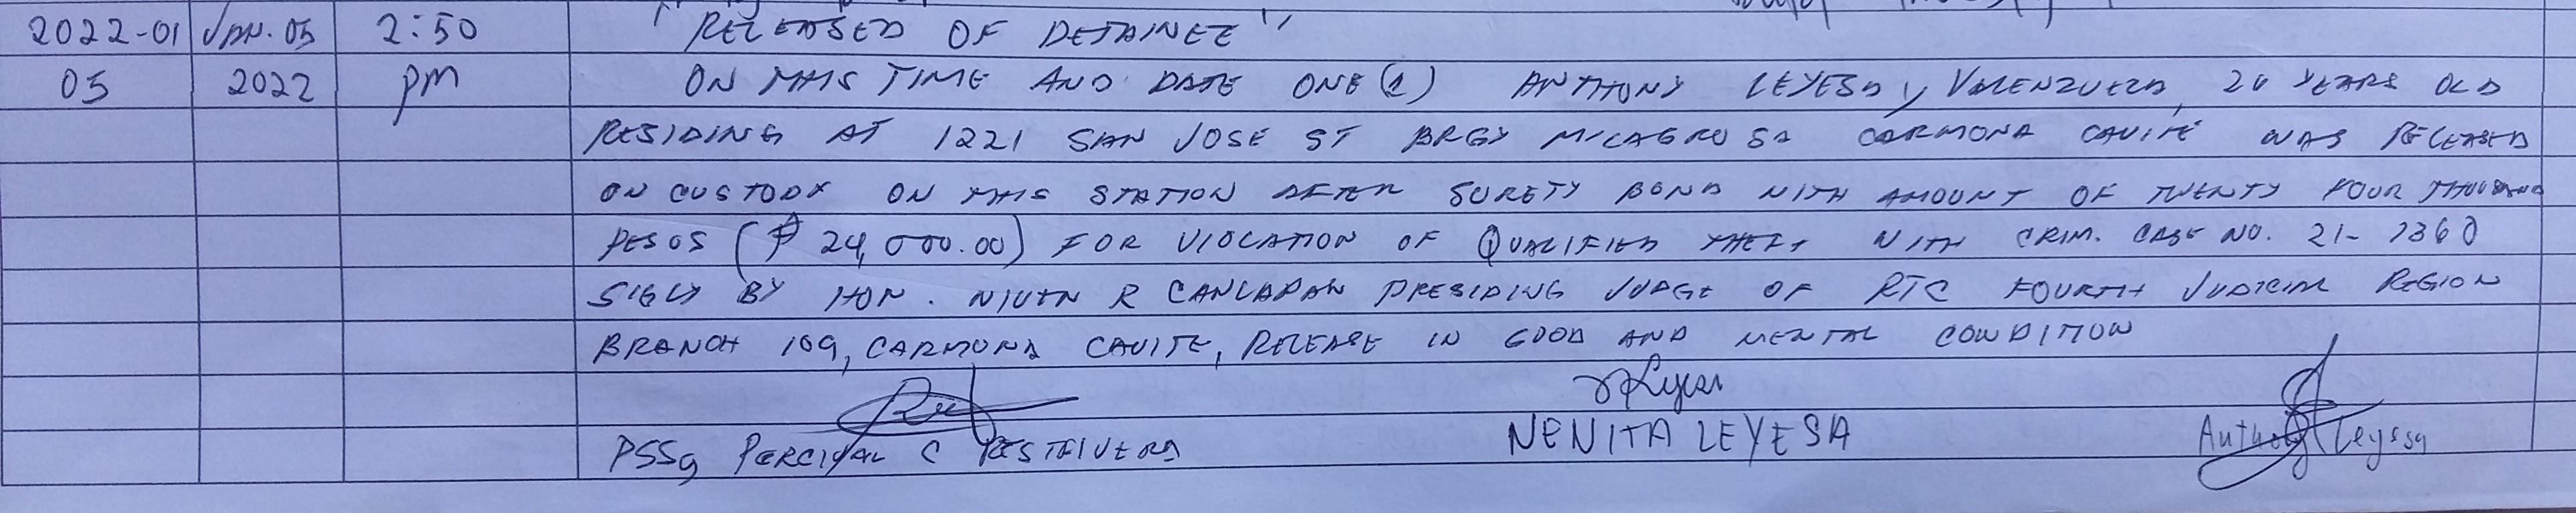 2022-01 JAN. 05 2:50 "RELEASED OF DETAINEE"
05 2022 pm ON THIS TIME AND DATE ONE (1) ANTHONY LEYESA y VALENZUELA, 20 YEARS OLD
RESIDING AT 1221 SAN JOSE ST BRGY MILAGROSA CARMONA CAVITE WAS RELEASED
ON CUSTODY ON THIS STATION AFTER SURETY BOND WITH AMOUNT OF TWENTY FOUR THOUSAND
PESOS (₱ 24,000.00) FOR VIOLATION OF QUALIFIED THEFT WITH CRIM. CASE NO. 21-1360
SIGLY BY HON. NIVEN R CANLAPAN PRESIDING JUDGE OF RTC FOURTH JUDICIAL REGION
BRANCH 109, CARMONA CAVITE, RELEASE IN GOOD AND MENTAL CONDITION
PSSg PERCIVAL C RESTAIVERA NENITA LEYESA Anthony Leyesa